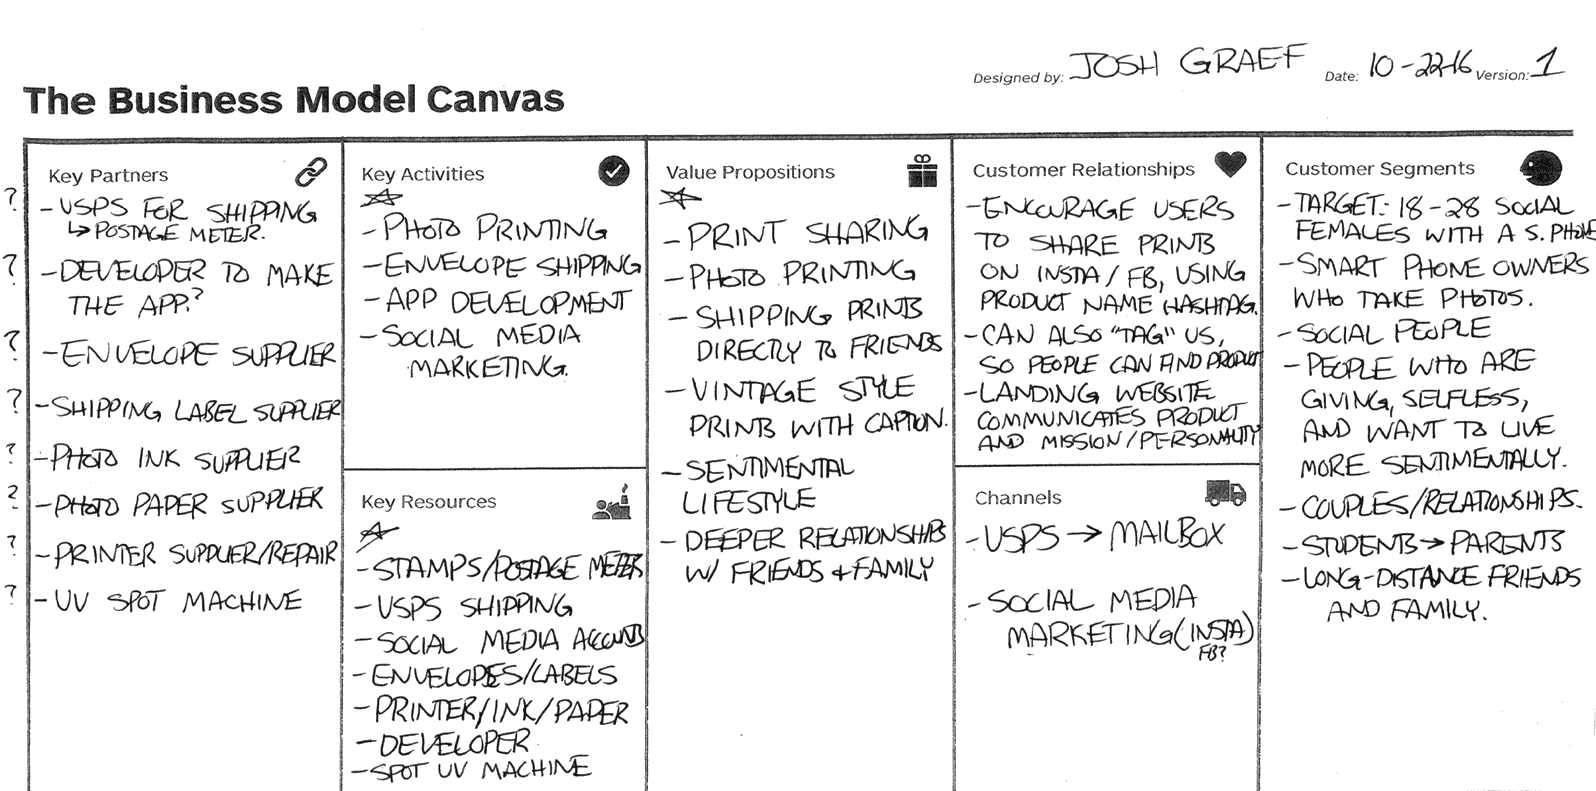 Designed by: JOSH GRAEF Date: 10-22-16 Version: 1
The Business Model Canvas
Key Partners
? - USPS FOR SHIPPING
↳ POSTAGE METER.
? - DEVELOPER TO MAKE
THE APP?
? - ENVELOPE SUPPLIER
? - SHIPPING LABEL SUPPLIER
? - PHOTO INK SUPPLIER
? - PHOTO PAPER SUPPLIER
? - PRINTER SUPPLIER/REPAIR
? - UV SPOT MACHINE
Key Activities
- PHOTO PRINTING
- ENVELOPE SHIPPING
- APP DEVELOPMENT
- SOCIAL MEDIA
MARKETING.
Key Resources
- STAMPS/POSTAGE METER
- USPS SHIPPING
- SOCIAL MEDIA ACCOUNTS
- ENVELOPES/LABELS
- PRINTER/INK/PAPER
- DEVELOPER
- SPOT UV MACHINE
Value Propositions
- PRINT SHARING
- PHOTO PRINTING
- SHIPPING PRINTS
DIRECTLY TO FRIENDS
- VINTAGE STYLE
PRINTS WITH CAPTION.
- SENTIMENTAL
LIFESTYLE
- DEEPER RELATIONSHIPS
W/ FRIENDS + FAMILY
Customer Relationships
- ENCOURAGE USERS
TO SHARE PRINTS
ON INSTA/FB, USING
PRODUCT NAME HASHTAG.
- CAN ALSO "TAG" US,
SO PEOPLE CAN FIND PRODUCT
- LANDING WEBSITE
COMMUNICATES PRODUCT
AND MISSION/PERSONALITY
Channels
- USPS → MAILBOX
- SOCIAL MEDIA
MARKETING (INSTA)
FB?
Customer Segments
- TARGET: 18-28 SOCIAL
FEMALES WITH A S. PHONE
- SMART PHONE OWNERS
WHO TAKE PHOTOS.
- SOCIAL PEOPLE
- PEOPLE WHO ARE
GIVING, SELFLESS,
AND WANT TO LIVE
MORE SENTIMENTALLY.
- COUPLES/RELATIONSHIPS.
- STUDENTS → PARENTS
- LONG-DISTANCE FRIENDS
AND FAMILY.